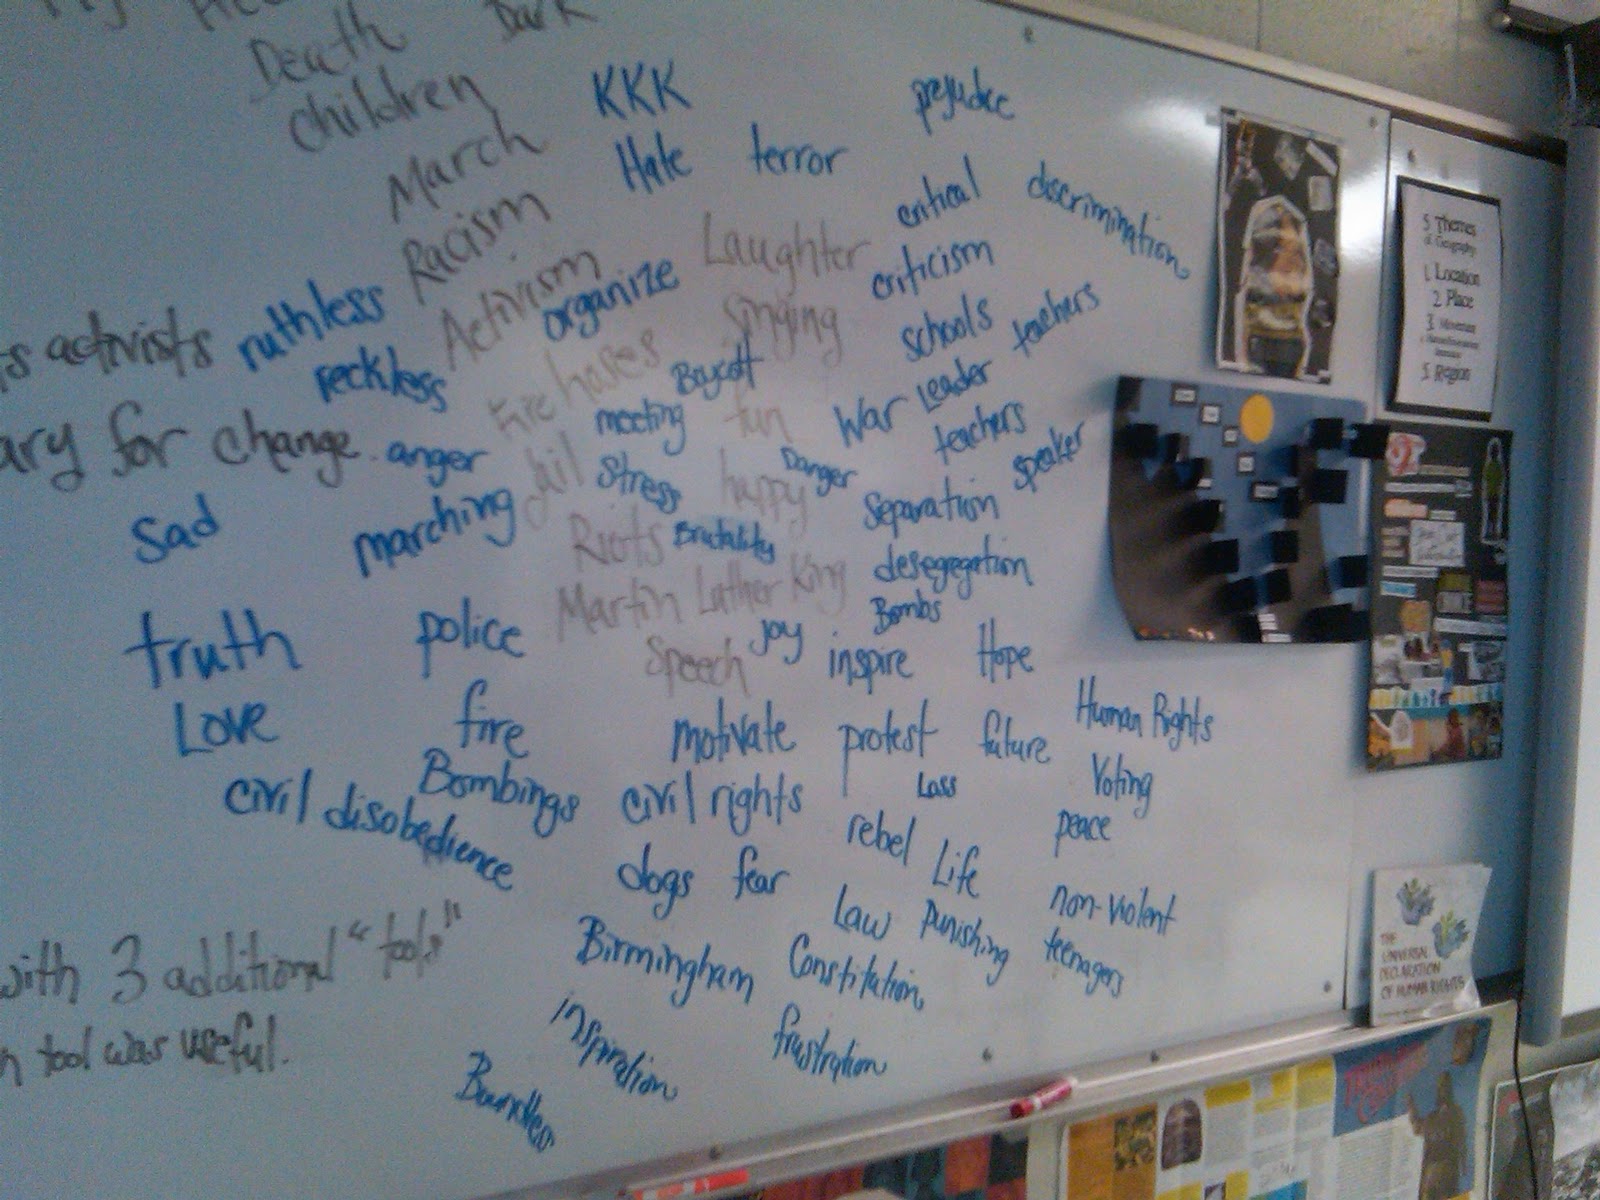 Dark
Death
children
KKK
prejudice
March
Hate terror
critical discrimination
Racism
Laughter
criticism
Activism
organize
Singing
schools teachers
activists ruthless
reckless
Fire hoses
Boycott
War Leader
meeting
fun
teachers
for change.
anger
jail
Stress
happy
Danger
Separation speaker
Sad
marching
Riots
Brutality
desegegation
Martin Luther King
Bombs
truth
police
Speech
joy
inspire
Hope
Love
fire
motivate protest future
Human Rights
Bombings
civil rights
Loss
Voting
civil disobedience
rebel
peace
dogs fear
Life
Law punishing
non-violent
teenagers
with 3 additional "tools"
Birmingham
Constitution
tool was useful.
inspiration
frustration
5 Themes
of Geography
1. Location
2. Place
3. Movement
5. Region
THE
UNIVERSAL
DECLARATION
OF HUMAN RIGHTS